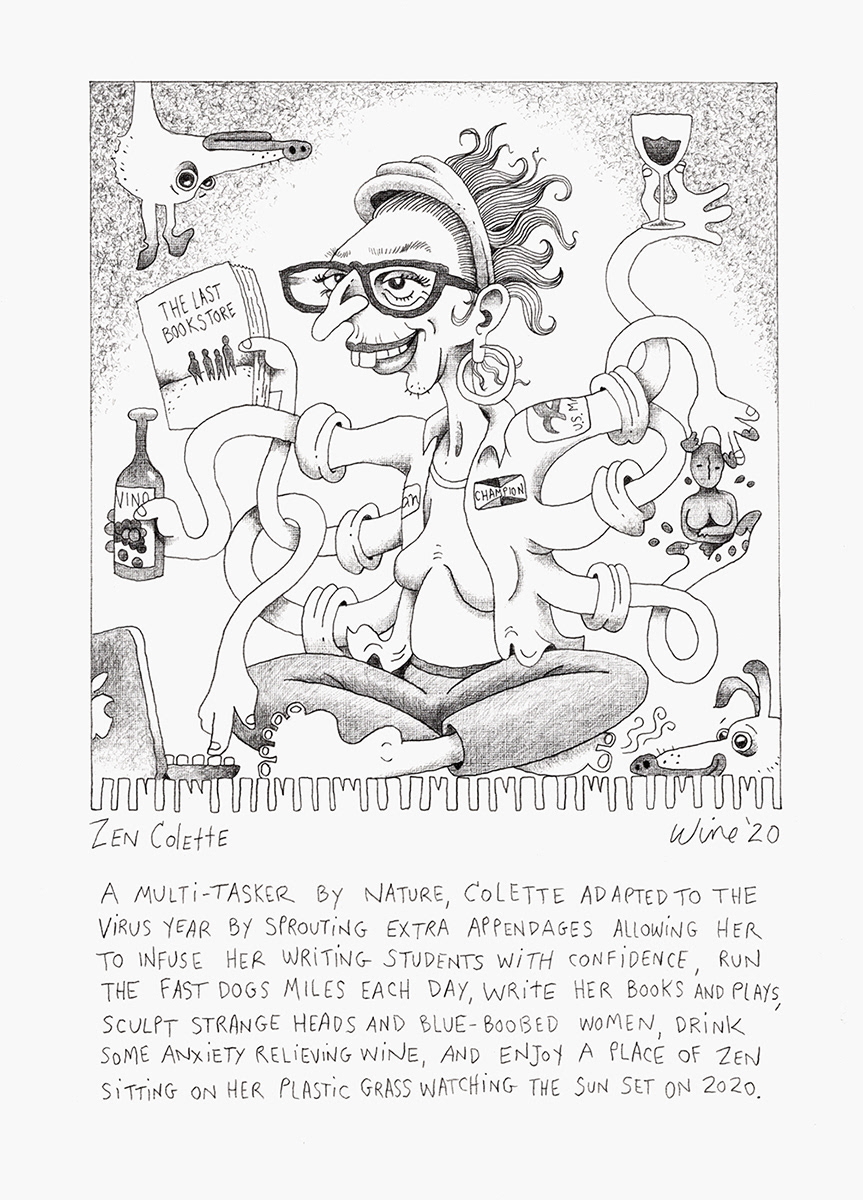 THE LAST
BOOKSTORE
VINO
US.M
an
CHAMPION
ZEN COLETTE
Wine '20
A MULTI-TASKER BY NATURE, COLETTE ADAPTED TO THE
VIRUS YEAR BY SPROUTING EXTRA APPENDAGES ALLOWING HER
TO INFUSE HER WRITING STUDENTS WITH CONFIDENCE, RUN
THE FAST DOGS MILES EACH DAY, WRITE HER BOOKS AND PLAYS,
SCULPT STRANGE HEADS AND BLUE-BOOBED WOMEN, DRINK
SOME ANXIETY RELIEVING WINE, AND ENJOY A PLACE OF ZEN
SITTING ON HER PLASTIC GRASS WATCHING THE SUN SET ON 2020.